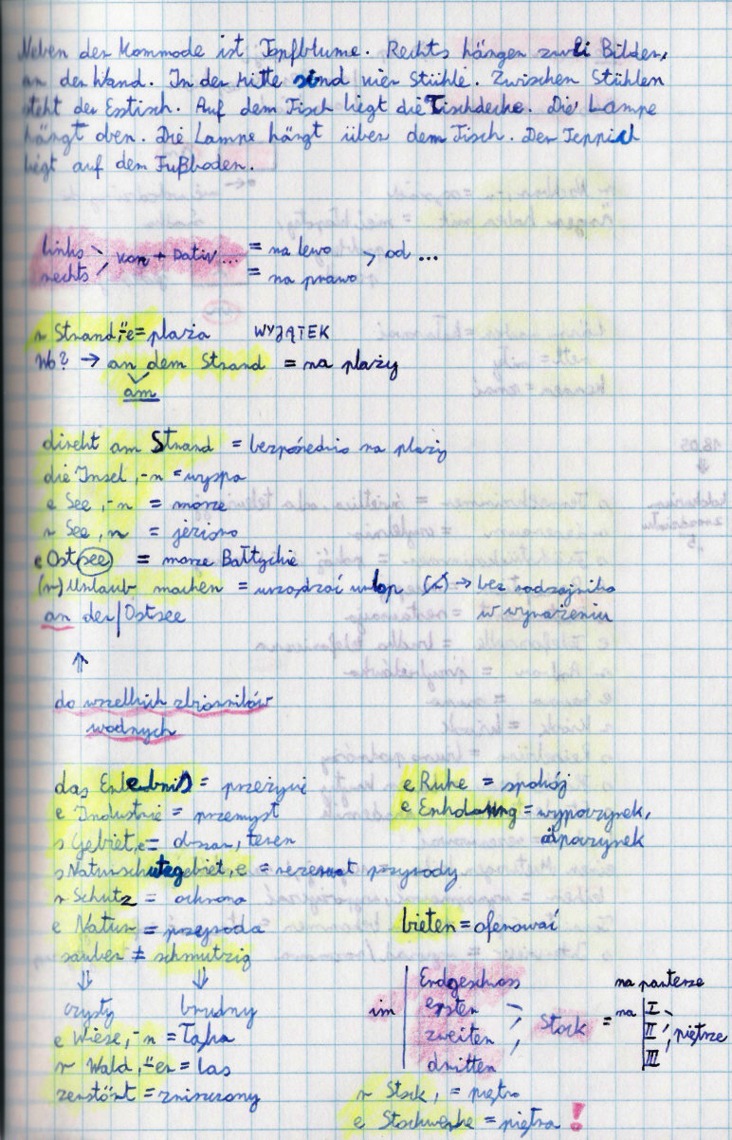 Neben der Kommode ist Topfblume. Rechts hängen zwei Bilder,
an der Wand. In der Mitte sind vier Stühle. Zwischen Stühlen
steht der Esstisch. Auf dem Tisch liegt die Tischdecke. Die Lampe
hängt oben. Die Lampe hängt über dem Tisch. Der Teppich
liegt auf dem Fußboden.
links
rechts
von + Dativ... = na lewo
= na prawo
, od ...
r Strand,¨e = plaża WYJĄTEK
Wo? → an dem Strand = na plaży
am
direkt am Strand = bezpośrednio na plaży
die Insel, -n = wyspa
e See, -n = morze
r See, n = jezioro
e Ostsee = morze Bałtyckie
(r) Urlaub machen = urządzać urlop (r) → bez rodzajnika
w wyrażeniu
an der Ostsee
⇑
do wszelkich zbiorników
wodnych
das Erlebnis = przeżycie
e Industrie = przemysł
s Gebiet, e = obszar, teren
s Naturschutzgebiet, e = rezerwat przyrody
r Schutz = ochrona
e Natur = przyroda
sauber ≠ schmutzig
⇓ ⇓
czysty brudny
e Wiese, -n = łąka
r Wald, ¨er = las
zerstört = zniszczony
e Ruhe = spokój
e Erholung = wypoczynek,
odpoczynek
bieten = oferować
im
Erdgeschoss
ersten
zweiten
dritten
Stock =
na parterze
na I
II
III
piętrze
r Stock, = piętro
e Stockwerke = piętra !